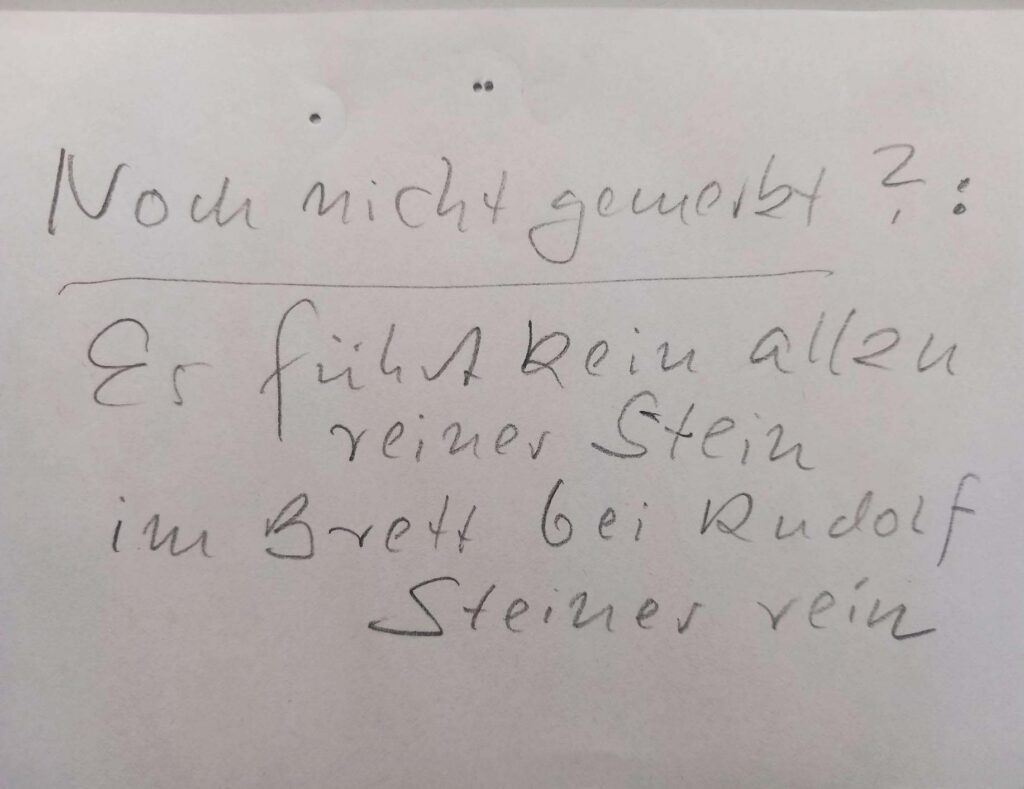 Noch nicht gemerkt?:
Es führt kein allen
reiner Stein
im Brett bei Rudolf
Steiner rein